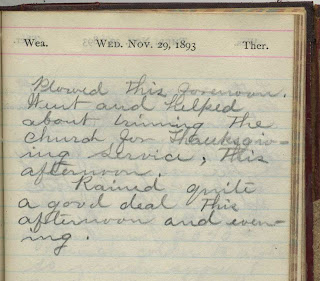 Wea. WED. NOV. 29, 1893 Ther.
Plowed this forenoon.
Went and helped
about trimming the
church for Thanksgiv-
ing service, this
afternoon.
Rained quite
a good deal this
afternoon and even-
ing.